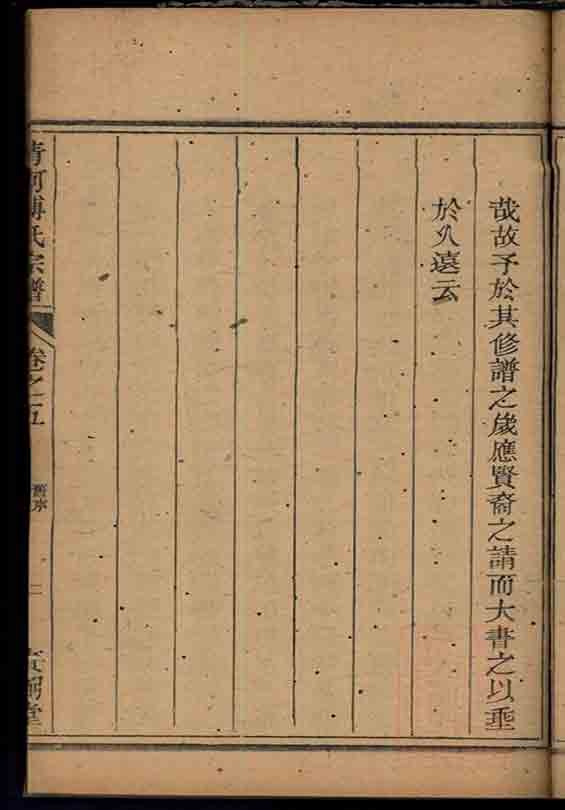 哉故予於其修譜之歲應賢裔之請而大書之以垂
於久遠云
清河傅氏宗譜
卷之五
舊序
二